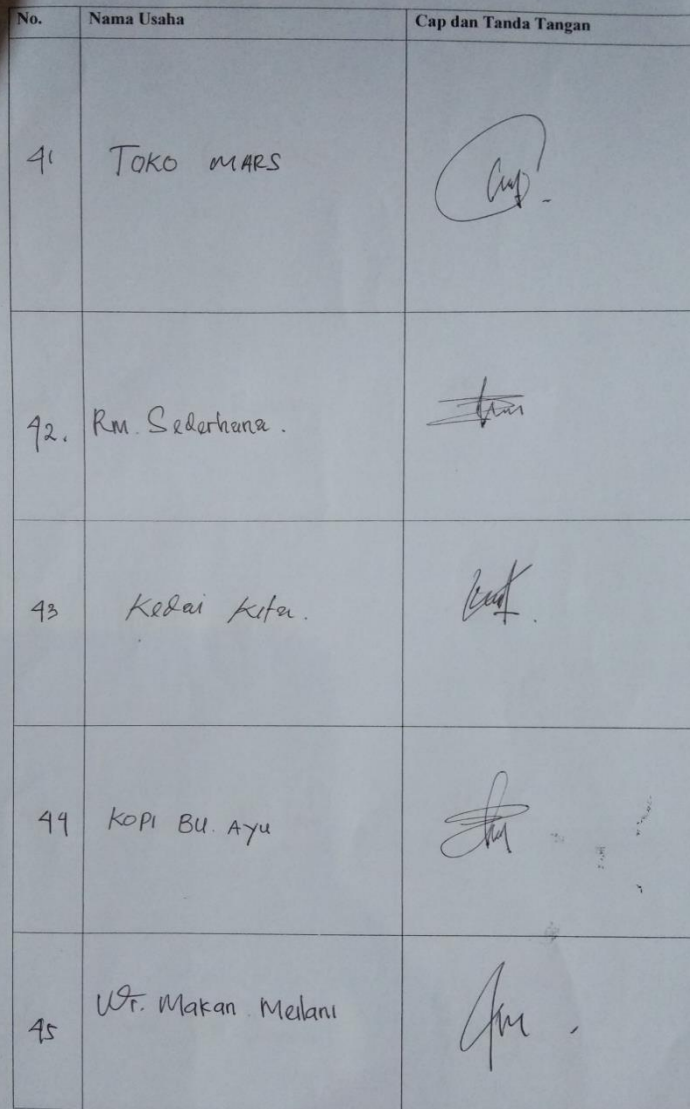 No. Nama Usaha Cap dan Tanda Tangan
41 TOKO MARS
42. RM. Sederhana.
43 Kedai Kita.
44 KOPI BU. AYU
45 Wr. Makan Meilani